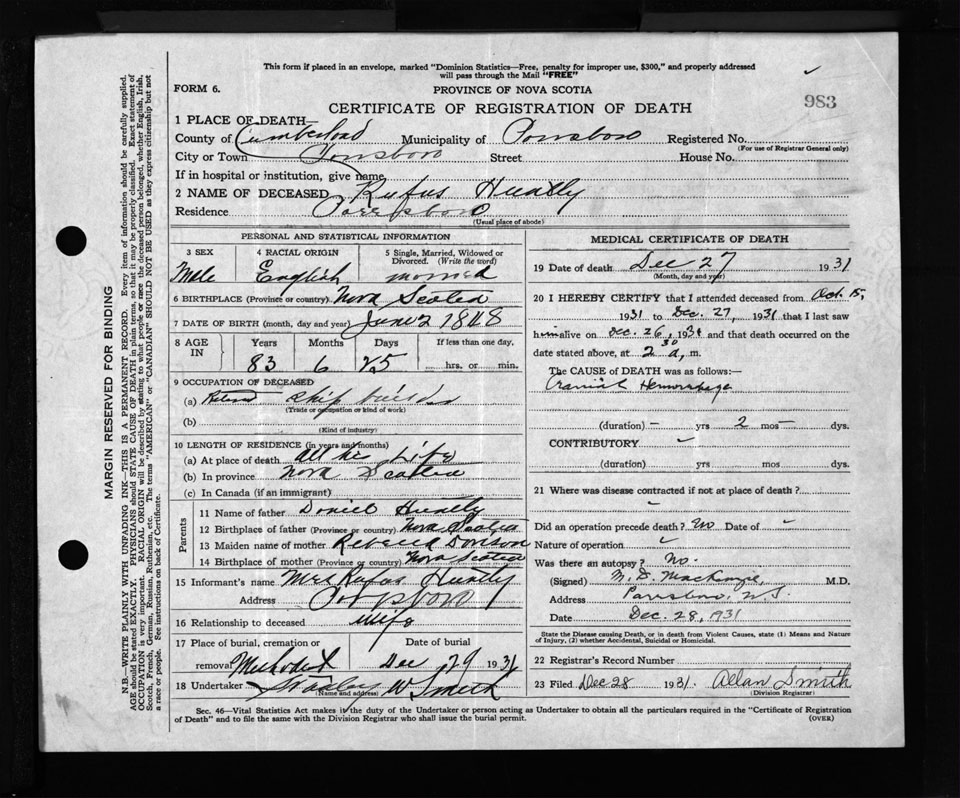 This form if placed in an envelope, marked "Dominion Statistics—Free, penalty for improper use, $300," and properly addressed
will pass through the Mail "FREE"
FORM 6.
PROVINCE OF NOVA SCOTIA
983
CERTIFICATE OF REGISTRATION OF DEATH
1 PLACE OF DEATH
County of Cumberland Municipality of Parrsboro Registered No.
(For use of Registrar General only)
City or Town Parrsboro Street House No.
If in hospital or institution, give name
2 NAME OF DECEASED Rufus Huntly
Residence Parrsboro
(Usual place of abode)
PERSONAL AND STATISTICAL INFORMATION
3 SEX 4 RACIAL ORIGIN 5 Single, Married, Widowed or
Divorced. (Write the word)
Male English married
6 BIRTHPLACE (Province or country) Nova Scotia
7 DATE OF BIRTH (month, day and year) June 2 1848
8 AGE IN Years Months Days If less than one day,
83 6 25 hrs. or min.
9 OCCUPATION OF DECEASED
(a) Retired ship builder
(Trade or occupation or kind of work)
(b)
(Kind of industry)
10 LENGTH OF RESIDENCE (in years and months)
(a) At place of death all his Life
(b) In province Nova Scotia
(c) In Canada (if an immigrant)
Parents
11 Name of father Daniel Huntly
12 Birthplace of father (Province or country) Nova Scotia
13 Maiden name of mother Rebecca
14 Birthplace of mother (Province or country) Nova Scotia
15 Informant's name Mrs Rufus Huntly
Address Parrsboro
16 Relationship to deceased wife
17 Place of burial, cremation or Date of burial
removal Methodist Dec 29 1931
18 Undertaker W Smith
(Name and address)
MEDICAL CERTIFICATE OF DEATH
19 Date of death Dec 27 1931
(Month, day and year)
20 I HEREBY CERTIFY that I attended deceased from Oct. 15,
1931 to Dec. 27, 1931 that I last saw
him alive on Dec. 26, 1931 and that death occurred on
date stated above, at 2 30 a, m.
The CAUSE of DEATH was as follows:—
Cranial Hemorrhage
(duration) — yrs 2 mos — dys.
CONTRIBUTORY
(duration) yrs mos dys.
21 Where was disease contracted if not at place of death?
Did an operation precede death? No Date of
Nature of operation
Was there an autopsy? No.
(Signed) M. D. MacKenzie M.D.
Address Parrsboro, N.S.
Date Dec. 28, 1931
State the Disease causing Death, or in death from Violent Causes, state (1) Means and Nature
of Injury, (2) whether Accidental, Suicidal or Homicidal.
22 Registrar's Record Number
23 Filed Dec 28 1931. Allan Smith
(Division Registrar)
Sec. 46—Vital Statistics Act makes it the duty of the Undertaker or person acting as Undertaker to obtain all the particulars required in the "Certificate of Registration
of Death" and to file the same with the Division Registrar who shall issue the burial permit. (OVER)
MARGIN RESERVED FOR BINDING
N.B.—WRITE PLAINLY WITH UNFADING INK—THIS IS A PERMANENT RECORD. Every item of information should be carefully supplied.
AGE should be stated EXACTLY. PHYSICIANS should STATE CAUSE OF DEATH in plain terms, so that it may be properly classified. Exact statement of
OCCUPATION is very important. RACIAL ORIGIN will be described by stating to what people or race the deceased person belonged, whether English, Irish,
Scotch, French, German, Russian, Ruthenian, etc. The terms "AMERICAN" or "CANADIAN" SHOULD NOT BE USED as they express citizenship but not
a race or people. See instructions on back of Certificate.